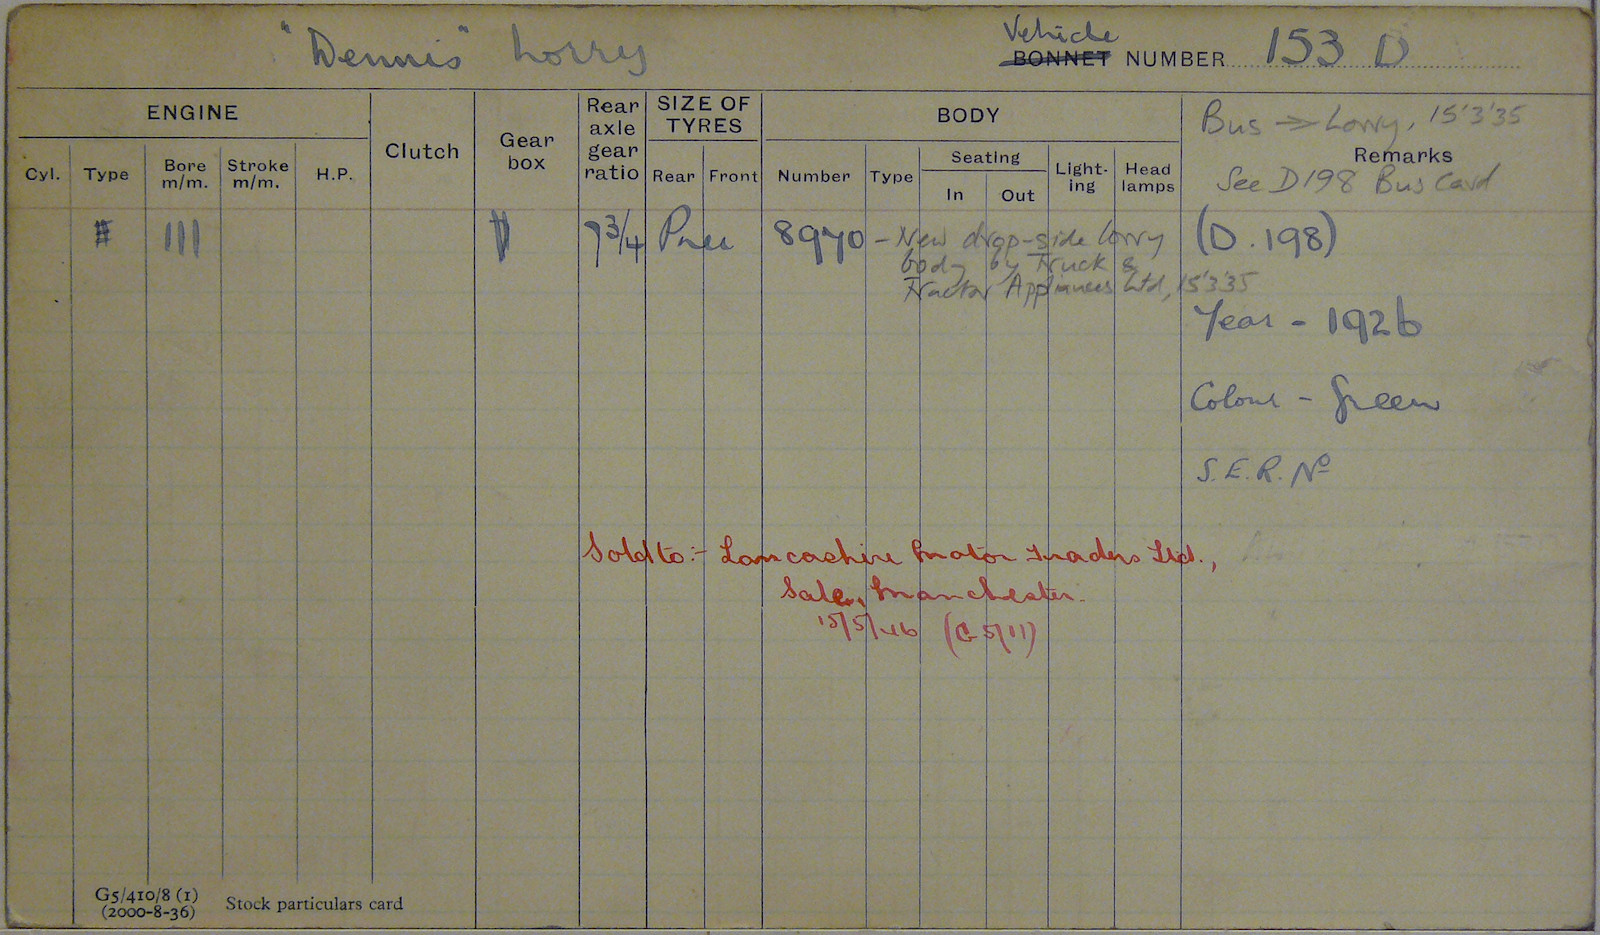 "Dennis" Lorry
Vehicle
BONNET NUMBER 153 D
ENGINE
Clutch
Gear box
Rear axle gear ratio
SIZE OF TYRES
BODY
Bus → Lorry, 15'3'35
Remarks
See D198 Bus Card
Cyl.
Type
Bore m/m.
Stroke m/m.
H.P.
Rear
Front
Number
Type
Seating
In
Out
Light-ing
Head lamps
111
7 3/4
Pneu
8970 - New drop-side lorry
body by Truck &
Tractor Appliances Ltd, 15'3'35
(D.198)
Year - 1926
Colour - Green
S.E.R. No
Sold to:- Lancashire Motor Traders Ltd.,
Sale, Manchester.
15/5/46 (G 5/11)
G5/410/8 (1)
(2000-8-36)
Stock particulars card